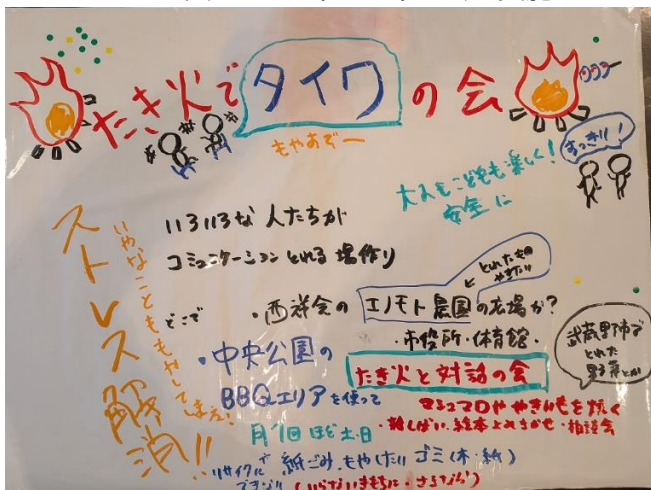 たき火でタイワの会
もやあぞー
すっきり!
大人もこどもも楽しく!
安全に
ストレス解消!!
いやなことももやしてしまえ!
いろいろな人たちが
コミュニケーションとれる場作り
どこで
・西祥会のエノモト農園の広場か?
とれたもの
やきたい
・市役所・体育館・
・中央公園の
BBQエリアを使って
たき火と対話の会
武蔵野市で
とれた
野菜とか
マシュマロややきいもを焼く
・難しばい・絵本よみきかせ・相談会
月1回ほど土・日
リサイクル
できない
紙ごみ もやしたいゴミ(木・紙)
(いらないきもちに・さよなら)